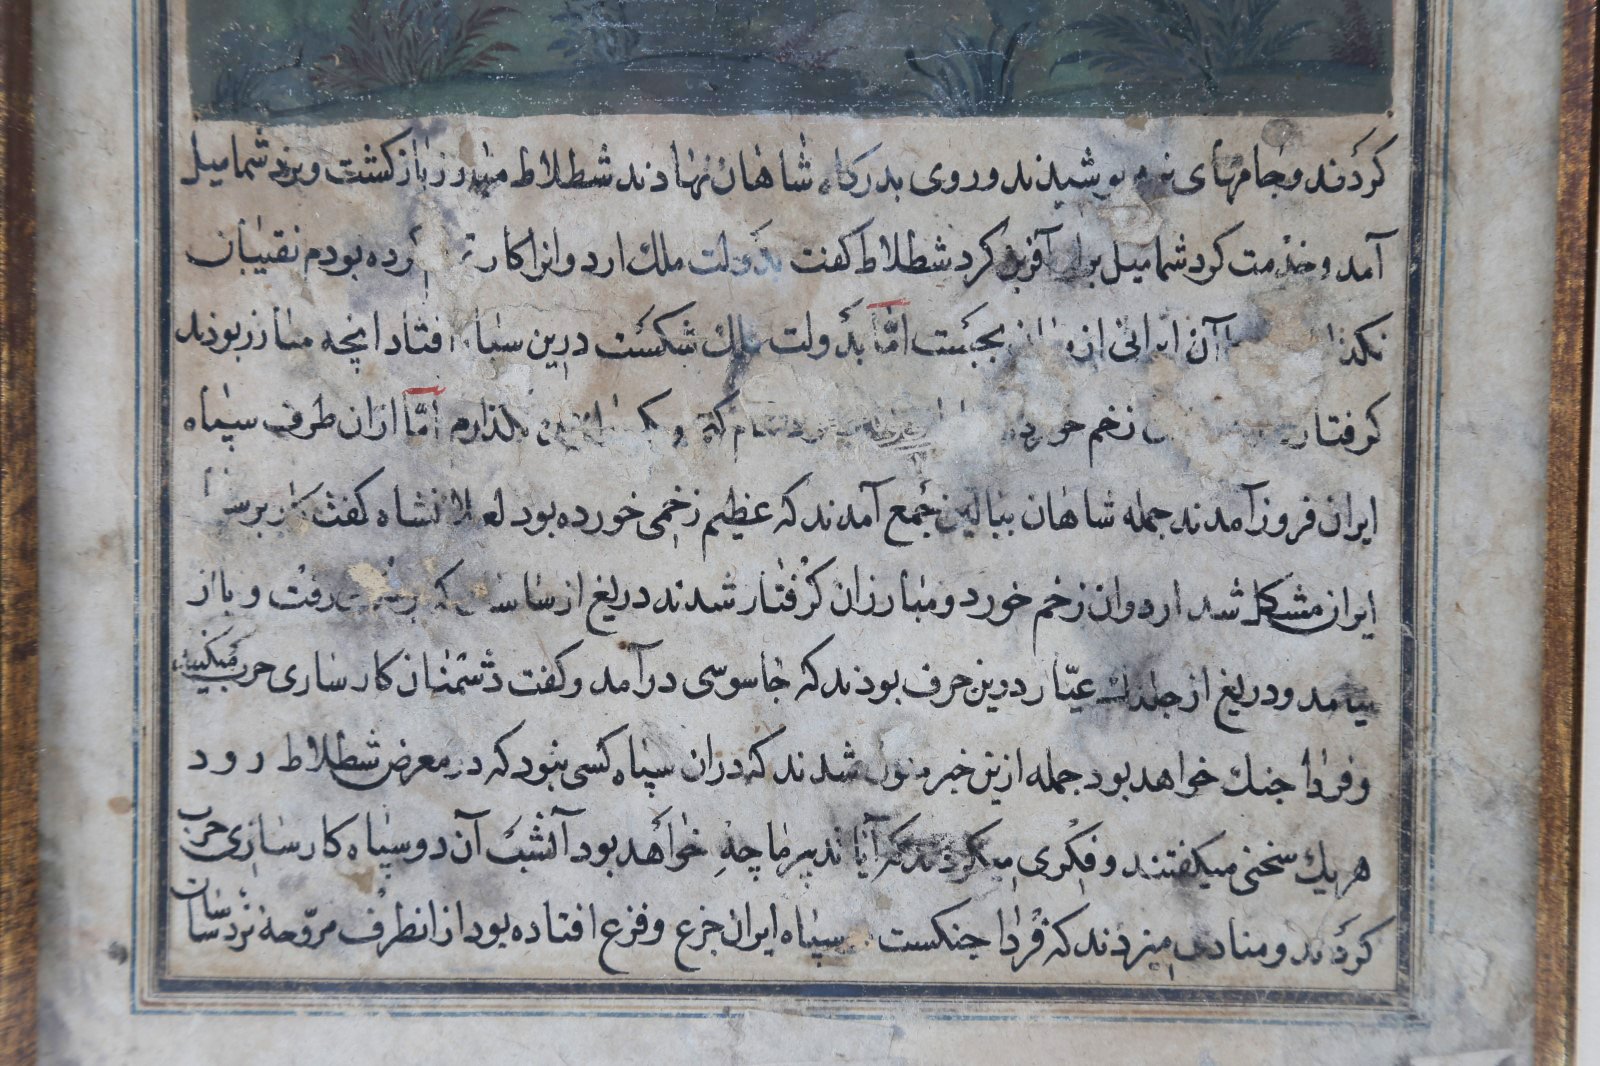 کردند و جامهای پوشیدند و روی بدرکاه شاهان نهادند شطلاط مظفر باز کشت و نزد شمامیل
آمد و خدمت کرد شمامیل برو آفرین کرد شطلاط کفت بدولت ملک اردوانرا کار کرده بودم نقیبان
نکذا آن ایرانی از بجست امّا بدولت ملک شکست درین سپاه افتاد انچه مبارز بودند
کرفتار زخم خورد امّا ازان طرف سپاه
ایران فروز آمدند جمله شاهان ببالین جمع آمدند که عظیم زخمی خورده بود لعلانشاه کفت کار بر
ایران مشکل شد اردوان زخم خورد و مبارزان کرفتار شدند دریغ از که رفت و باز
نیامد و دریغ از جلدک عیّار درین حرف بودند که جاسوسی درآمد و کفت دشمنان کارسازی حرب میکنند
و فردا جنک خواهد بود جمله ازین خبر ملول شدند که دران سپاه کسی نبود که در معرض شطلاط رود
هر یک سخنی میکفتند و فکری میکردند که آیا تدبیر ما چه خواهد بود آنشب آن دو سپاه کارسازی حرب
کردند و منادی میزدند که فردا جنکست سپاه ایران جزع و فزع افتاده بود از انطرف مروّحه نزد ساسان